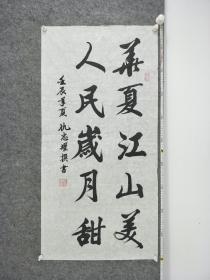 華夏江山美
人民歲月甜
壬辰季夏 仇志耀撰書